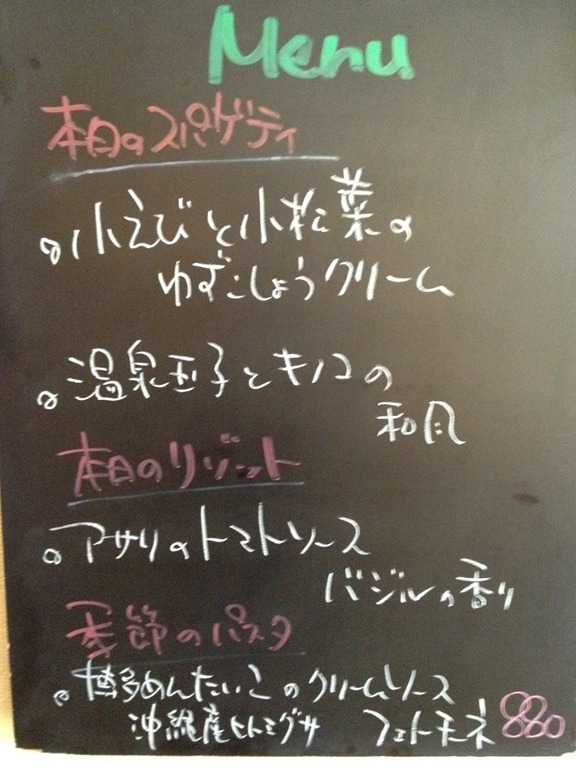 Menu
本日のスパゲティ
小えびと小松菜の
ゆずこしょうクリーム
温泉玉子とキノコの
和風
本日のリゾット
アサリのトマトソース
バジルの香り
季節のパスタ
博多めんたいこのクリームソース
沖縄産ヒトエグサ フェットチーネ 880